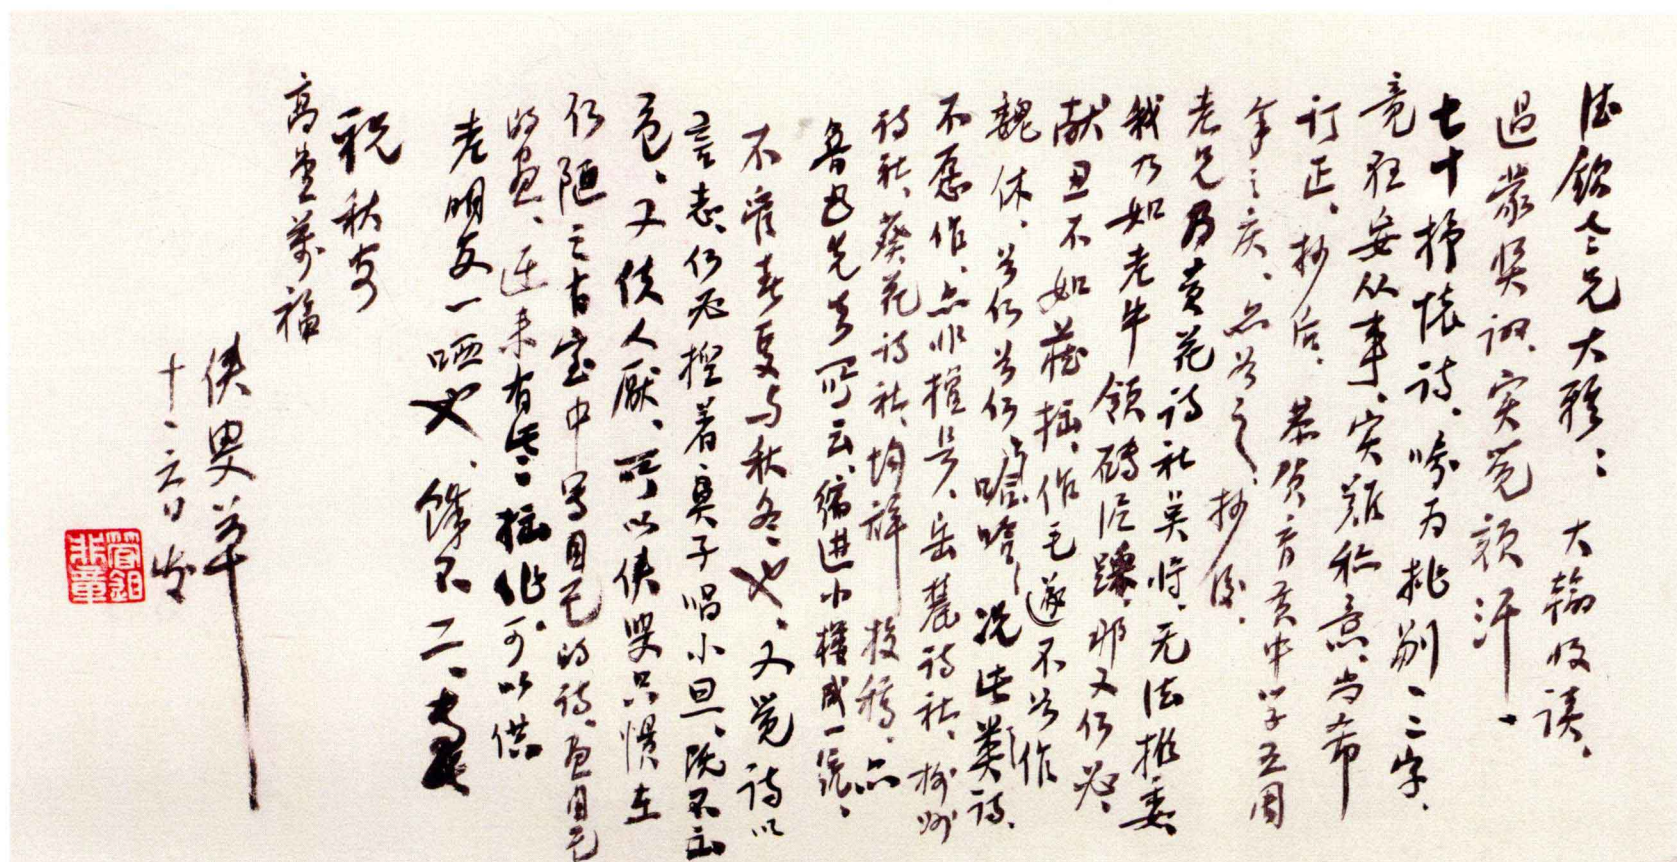 德銘老兄大雅：大翰收读、
過蒙奖誉、实觉颜汗、
七十抒怀诗、嘱为批削一二字、
竟狂妄从事、实难称意、尚希
订正、抄后、恭贺育英中学五周
年之庆、亦为之、抄后、
老兄乃黄花诗社吴将、无法推委、
我乃如老牛领磚后踩、那又何必
献丑不如藏拙、作毛遂不必作
魏休、为何为何嗆嗆、况此类诗、
不愿作、亦非擅长、岳麓诗社、柳州
诗社、葵花诗社、均辞投稿、亦
鲁迅先生所云、缩进小楼成一统、
不管春夏与秋冬也、又觉诗以
言志、何必捏着鼻子唱小旦、既不出
色、又使人厭、所以侠叟只惯在
仍陋之古室中写自己的诗、画自己
的画、近来有些拙作、可以供
老朋友一哂也、馀不一一、专此
祝秋安
高堂萬福
侠叟草
十、六日出